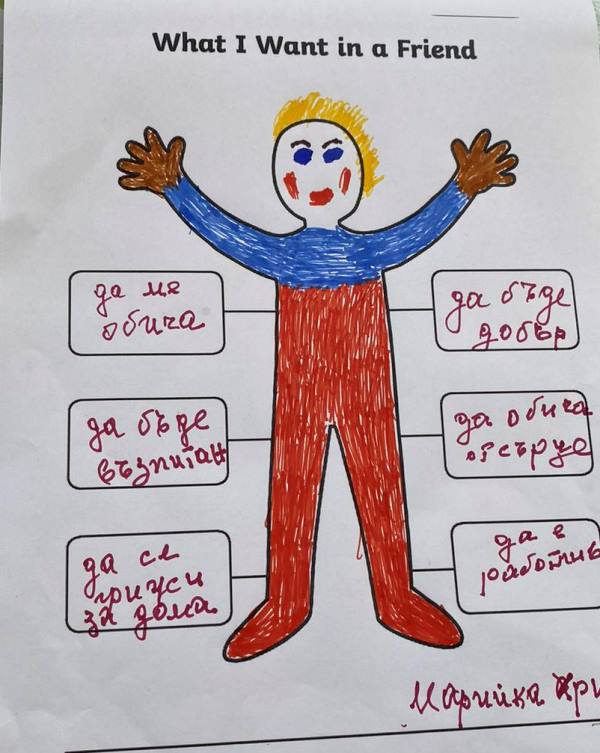 What I Want in a Friend
да ме
обича
да бъде
добър
да бъде
възпитан
да обича
от сърце
да се
грижи
за дома
да е
работлив
Марийка Хри